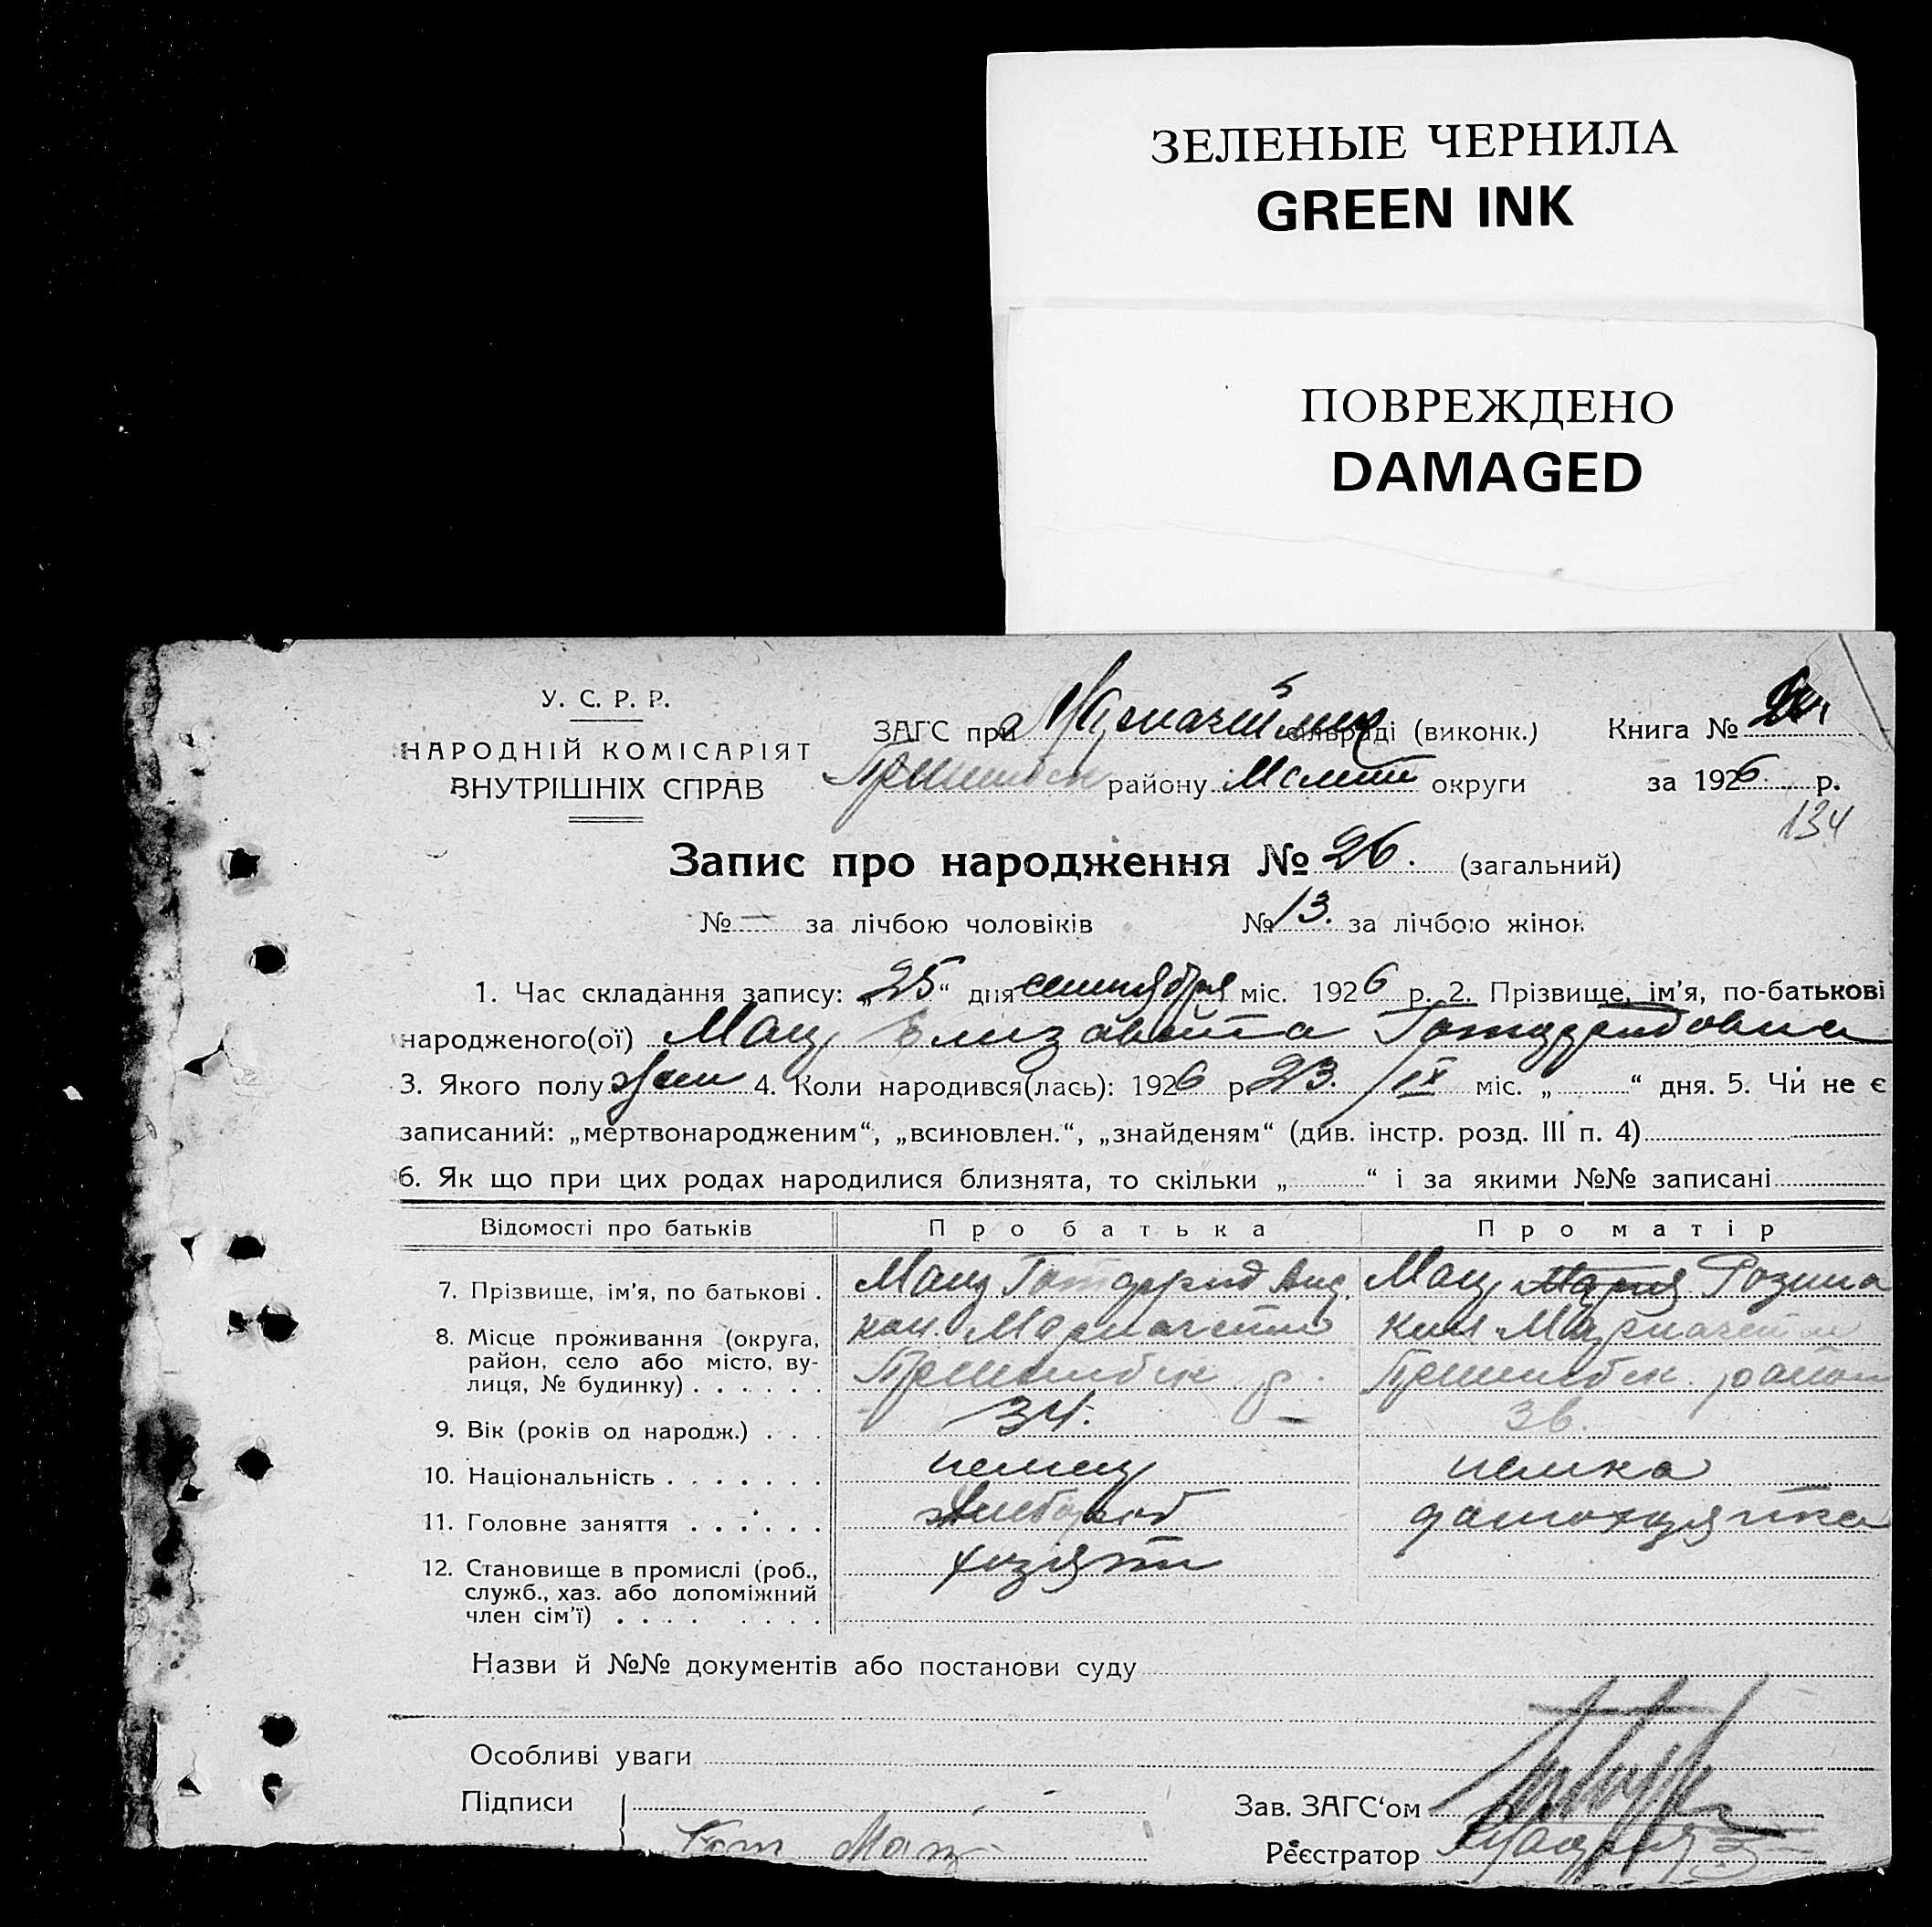 ЗЕЛЕНЫЕ ЧЕРНИЛА
GREEN INK
ПОВРЕЖДЕНО
DAMAGED
У. С. Р. Р.
НАРОДНІЙ КОМІСАРІЯТ
ВНУТРІШНІХ СПРАВ
ЗАГС при сільраді (виконк.) Книга №
району Мелит округи за 1926 р.
134
Запис про народження № 26. (загальний)
№ — за лічбою чоловіків № 13. за лічбою жінок
1. Час складання запису: „25“ дня сентября міс. 1926 р. 2. Прізвище, ім'я, по-батькові
народженого(ої) Мац Елизавета Готфридовна
3. Якого полу жен 4. Коли народився(лась): 1926 р. 23. / IX міс. „ “ дня. 5. Чи не є
записаний: „мертвонародженим“, „всиновлен.“, „знайденям“ (див. інстр. розд. III п. 4)
6. Як що при цих родах народилися близнята, то скільки „ “ і за якими №№ записані
Відомості про батьків Про батька Про матір
7. Прізвище, ім'я, по батькові . Мац Готфрид Анд. Мац Мария Розина
8. Місце проживання (округа, район, село або місто, вулиця, № будинку) . . . . . . кол. Мариагейм
Пришибск р.
кол Мариагейм
Пришибск. район
9. Вік (років од народж.) . . . 34. 36.
10. Національність . . . . . . . немец немка
11. Головне заняття . . . . . . хлебороб домохозяйка
12. Становище в промислі (роб., хозяин
служб., хаз. або допоміжний
член сім'ї) . . . . . . . .
Назви й №№ документів або постанови суду
Особливі уваги
Підписи Зав. ЗАГС'ом
Гот Мац Реєстратор